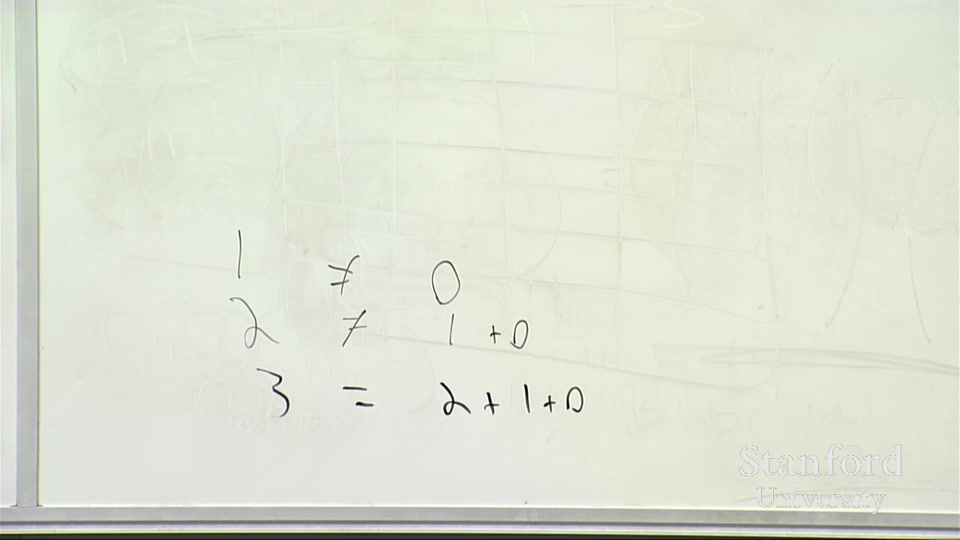 1 ≠ 0
2 ≠ 1 + 0
3 = 2 + 1 + 0
Stanford
University